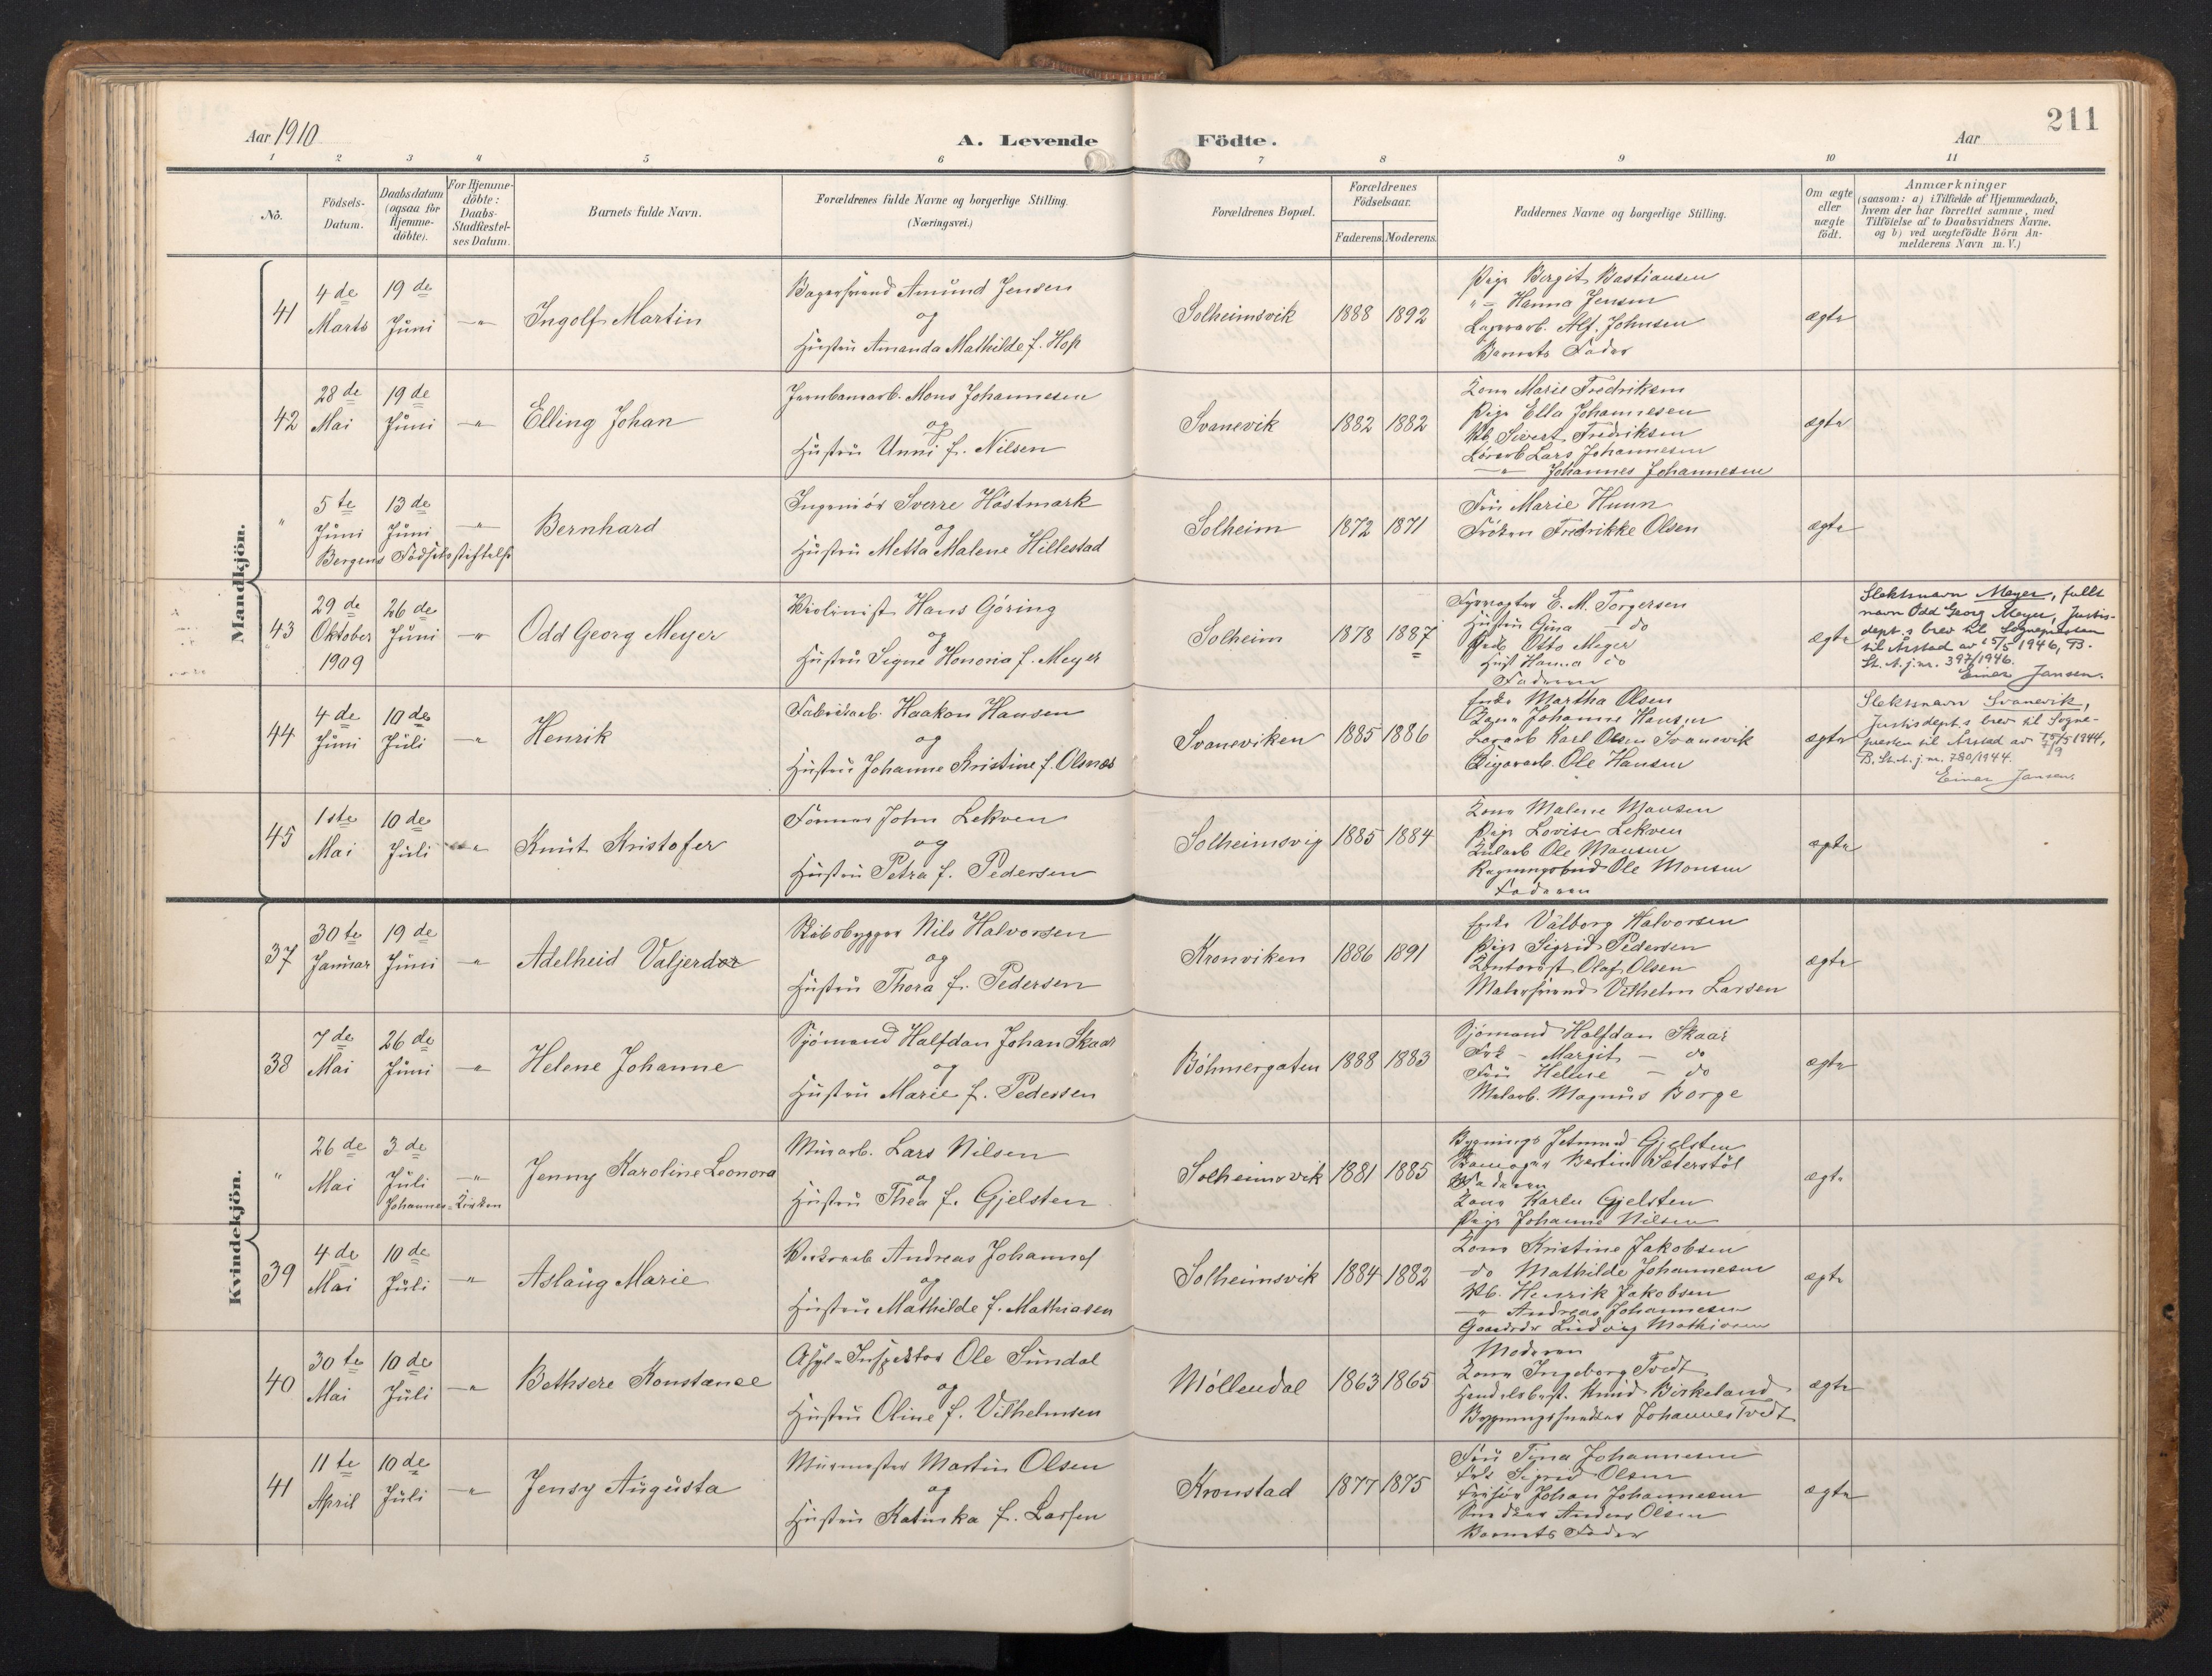 211
Aar 1910
A. Levende Födte.
Aar
1 2 3 4 5 6 7 8 9 10 11
No.
Födsels-
Datum.
Daabsdatum
(ogsaa for
Hjemme-
döbte).
For Hjemme-
döbte:
Daabs-
Stadfestel-
ses Datum.
Barnets fulde Navn.
Forældrenes fulde Navne og borgerlige Stilling.
(Næringsvei.)
Forældrenes Bopæl.
Forældrenes
Födselsaar.
Faderens. Moderens.
Faddernes Navne og borgerlige Stilling.
Om ægte
eller
uægte
født.
Anmærkninger
(saasom: a) i Tilfælde af Hjemmedaab,
hvem der har forrettet samme, med
Tilføielse af to Daabsvidners Navne.
og b) ved uægtefödte Börn An-
melderens Navn m. V.)
Mandkjön.
41
4de
Marts
19de
Juni
"
Ingolf Martin
Bagersvend Amund Jensen
og
Hustru Amanda Mathilde f. Hop
Solheimsvik
1888 1892
Pige Bergit Bastiansen
" - Hanna Jensen
Alf. Johnsen
Barnets Fader
ægte
42
28de
Mai
19de
Juni
"
Elling Johan
Jernbanearb. Mons Johannesen
og
Hustru Unni f. Nilsen
Svanevik
1882 1882
Kone Marie Fredriksen
Pige Ella Johannesen
Sivert Fredriksen
Lars Johannesen
" Johannes Johannesen
ægte
"
5te
Juni
13de
Juni
"
Bergens Födselsstiftelse
Bernhard
Ingeniör Sverre Höstmark
og
Hustru Metta Malene Hillestad
Solheim
1872 1871
Fru Marie Huun
Fröken Fredrikke Olsen
ægte
43
29de
Oktober
1909
26de
Juni
"
Odd Georg Meyer
Violinist Hans Göring
og
Hustru Signe Honoria f. Meyer
Solheim
1878 1887
Fyrvogter E. M. Torgersen
Hustru Gina - do
Otto Meyer
Hust Hanna do
Faderen
ægte
Slektsnavn Meyer, fullt
navn Odd Georg Meyer, Justis-
dept.s brev til Sognepresten
til Årstad av 15/5 1946, B.
St. A. j.nr. 397/1946.
Einar Jansen.
44
4de
Juni
10de
Juli
"
Henrik
Fabrikarb. Haakon Hansen
og
Hustru Johanne Kristine f. Olsnes
Svaneviken
1885 1886
Enke Martha Olsen
Kone Johanne Hansen
Karl Olsen Svanevik
Cigararb. Ole Hansen
ægte
Slektsnavn Svanevik,
Justisdept.s brev til Sogne-
presten til Årstad av 1944,
B. St. A. j.nr. 780/1944.
Einar Jansen.
45
1ste
Mai
10de
Juli
"
Knut Kristofer
Former John Lekven
og
Hustru Petra f. Pedersen
Solheimsvig
1885 1884
Kone Malene Monsen
Pige Lovise Lekven
Ole Monsen
Regningsbud Ole Monsen
Faderen
ægte
Kvindekjön.
37
30te
Januar
19de
Juni
"
Adelheid Valjerder
Skibsbygger Nils Halvorsen
og
Hustru Thora f. Pedersen
Kronviken
1886 1891
Enke Valborg Halvorsen
Pige Sigrid Pedersen
Kontorist Olaf Olsen
Malersvend Vilhelm Larsen
ægte
38
7de
Mai
26de
Juni
"
Helene Johanne
Sjömand Halfdan Johan Skaar
og
Hustru Marie f. Pedersen
Böhmergaten
1888 1883
Sjömand Halfdan Skaar
Frk - Margit - do
Fru Helene - do
Malarb. Magnus Borge
ægte
"
26de
Mai
3de
Juli
"
Johannes-Kirken
Jenny Karoline Leonora
Murarb. Lars Nilsen
og
Hustru Thea f. Gjelsten
Solheimsvik
1881 1885
Bygnings Jetmund Gjelsten
Bertin Sæterstöl
Faderen
Kone Karla Gjelsten
Pige Johanne Nilsen
ægte
39
4de
Mai
10de
Juli
"
Aslaug Marie
Andreas Johannes
og
Hustru Mathilde f. Mathiasen
Solheimsvik
1884 1882
Kone Kristine Jakobsen
do Mathilde Johannesen
Henrik Jakobsen
" Andreas Johannesen
Ludvig Mathiasen
ægte
40
30te
Mai
10de
Juli
"
Bethsere Konstance
Asyl-Inspektör Ole Sundal
og
Hustru Oline f. Vilhelmsen
Möllendal
1863 1865
Moderen
Kone Ingeborg Tvedt
Handelsbest. Knud Birkeland
Bygningssnedker Johannes Tvedt
ægte
41
11te
April
10de
Juli
"
Jensy Augusta
Murmester Martin Olsen
og
Hustru Katinka f. Larsen
Kronstad
1877 1875
Fru Tina Johannesen
Frk Sigrid Olsen
Frisör Johan Johannesen
Snedker Anders Olsen
Barnets Fader
ægte